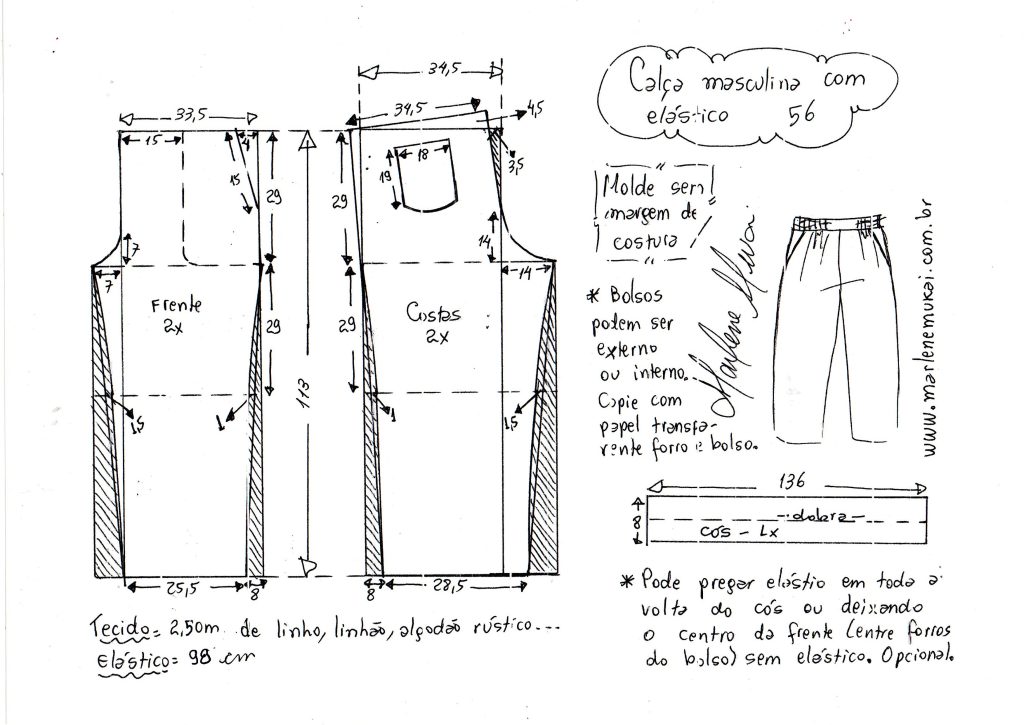 Calça masculina com
elástico 56
34,5
33,5
34,5
4,5
15
4
15
18
19
3,5
29
29
7
14
7
14
Frente
2x
Costas
2x
29
29
113
1,5
1
1
1,5
25,5
8
8
28,5
Molde sem
margem de
costura
Marlene Mukai
www.marlenemukai.com.br
* Bolsos
podem ser
externo
ou interno.
Copie com
papel transpa-
rente forro e bolso.
136
8
dobra
cós - 1x
Tecido = 2,50m de linho, linhão, algodão rústico...
Elástico = 98 cm
* Pode pregar elástio em toda a
volta do cós ou deixando
o centro da frente (entre forros
do bolso) sem elástico. Opcional.